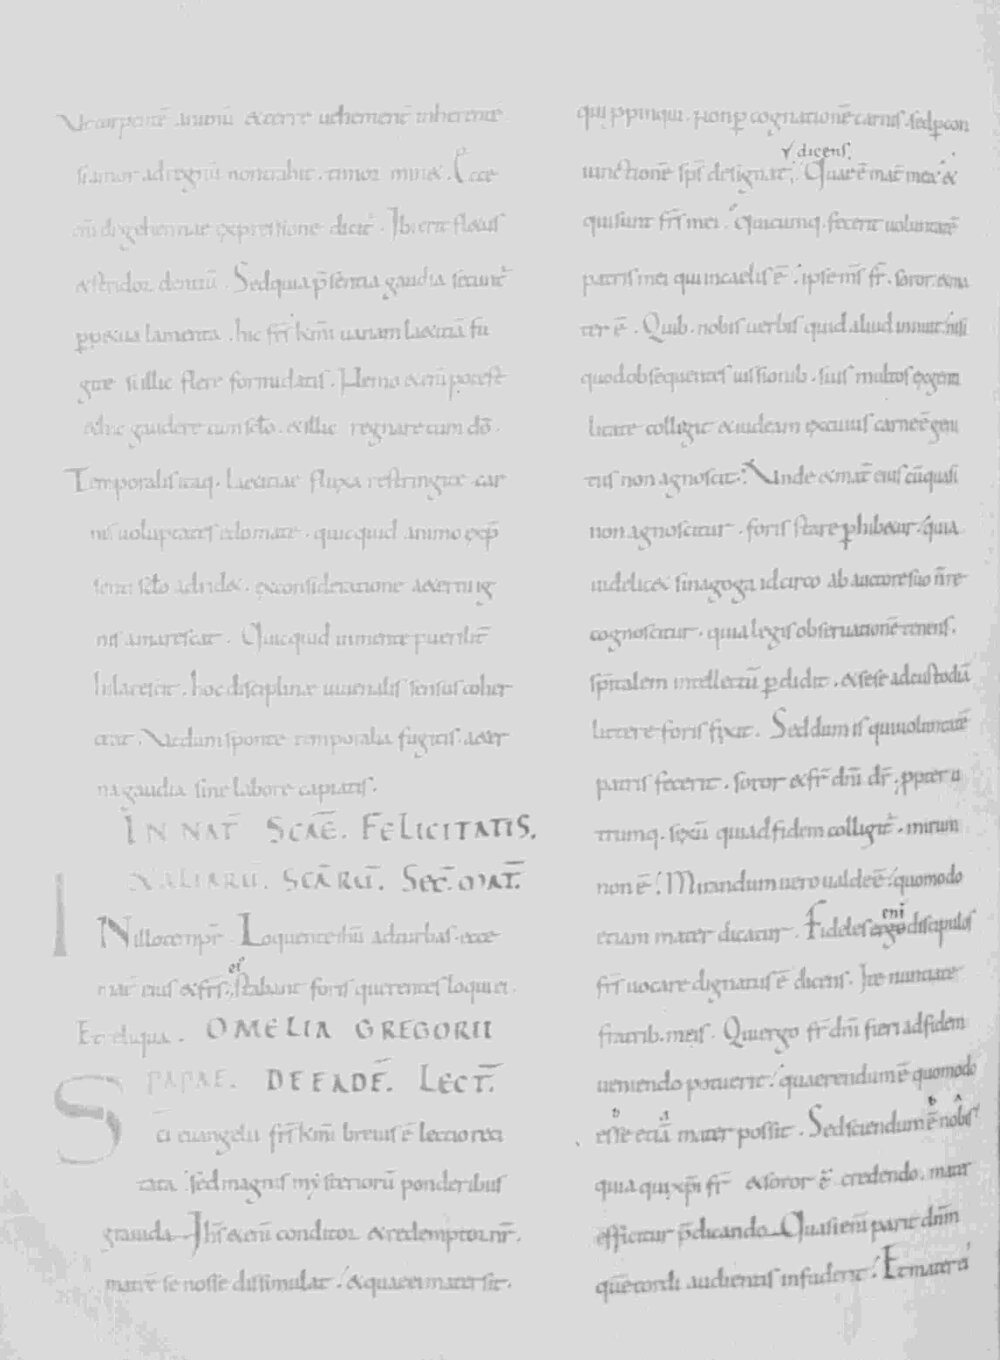 si amor ad regnū non trahit . timor minꝫ . Ecce
eñ de gehennae expressione dicit̄ . Ibi erit fletus
& stridor dentiū . Sed quia p̄sentia gaudia secunt̄
ppetua lamenta . hic frs̄ km̄i uanam laetitiā fu
gite si illic flere formidatis . Nemo etenī potest
& hic gaudere cum sc̄lo . & illic regnare cum dō .
Temporalis itaq . laetitiae fluxa restringite . car
nis uoluptates edomate . quicquid animo ex p̄
senti sc̄lo adridet . ex consideratione aeterni ig
nis amarescat . Quicquid in mente puerilit̄
hilarescit . hoc disciplinae iuuenalis sensus coher
ceat . Vt dum sponte temporalia fugitis . aeter
na gaudia sine labore capiatis .
IN NAT̄ SCAĒ . FELICITATIS .
XALIARŪ . SCĀRŪ . SEC̄ . MAT̄ .
IN illo tempr̄ . Loquente ihū ad turbas . ecce
mat̄ eius & frs̄ . ei stabant foris querentes loqui ei .
Et reliqua . OMELIA GREGORII
PAPAE . DE EADĒ . LECT̄ .
Sc̄i euangelii frs̄ km̄i breuis ē lectio reci
tata . sed magnis mysteriorū ponderibus
grauida Ihs̄ etenī conditor & redemptor nr̄ .
matrē se nosse dissimulat . & quae ei mater sit .
qui ppinqui . non p cognationē carnis . sed p con
iunctionē sps̄ designat ; dicens . Quae ē mat̄ mea &
qui sunt frs̄ mei . Quicumq . fecerit uoluntatē
patris mei qui in caelis ē . ipse ms̄ fr̄ . soror . & ma
ter ē . Quib . nobis uerbis quid aliud innuit . nisi
quod obsequentes iussionib . suis multos ex gen
tilitate colligit & iudeam ex cuius carne ē geni
tus non agnoscit . Vnde & mat̄ eius cū quasi
non agnoscitur . foris stare phibetur . quia
uidelicet sinagoga idcirco ab auctore suo n̄ re
cognoscitur . quia legis obseruationē tenens .
spiritalem intellectū pdidit . & sese ad custodiā
littere foris fixit . Sed dum is qui uoluntatē
patris fecerit . soror & fr̄ dn̄i dr̄ . ppter u
trumq . sexū qui ad fidem colligit̄ . mirum
non ē . Mirandum uero ualde ē . quomodo
etiam mater dicatur . Fideles eni ergo discipulos
frs̄ uocare dignatus ē dicens . Ite nuntiate
fratrib . meis . Qui ergo fr̄ dn̄i fieri ad fidem
ueniendo potuerit . quaerendum ē quomodo
esse etiā mater possit . Sed sciendum ē nobis
quia qui xp̄i fr̄ & soror ē credendo . mater
efficitur p̄dicando . Quasi enī parit dn̄m
quē cordi audientis infuderit . Et mater ei